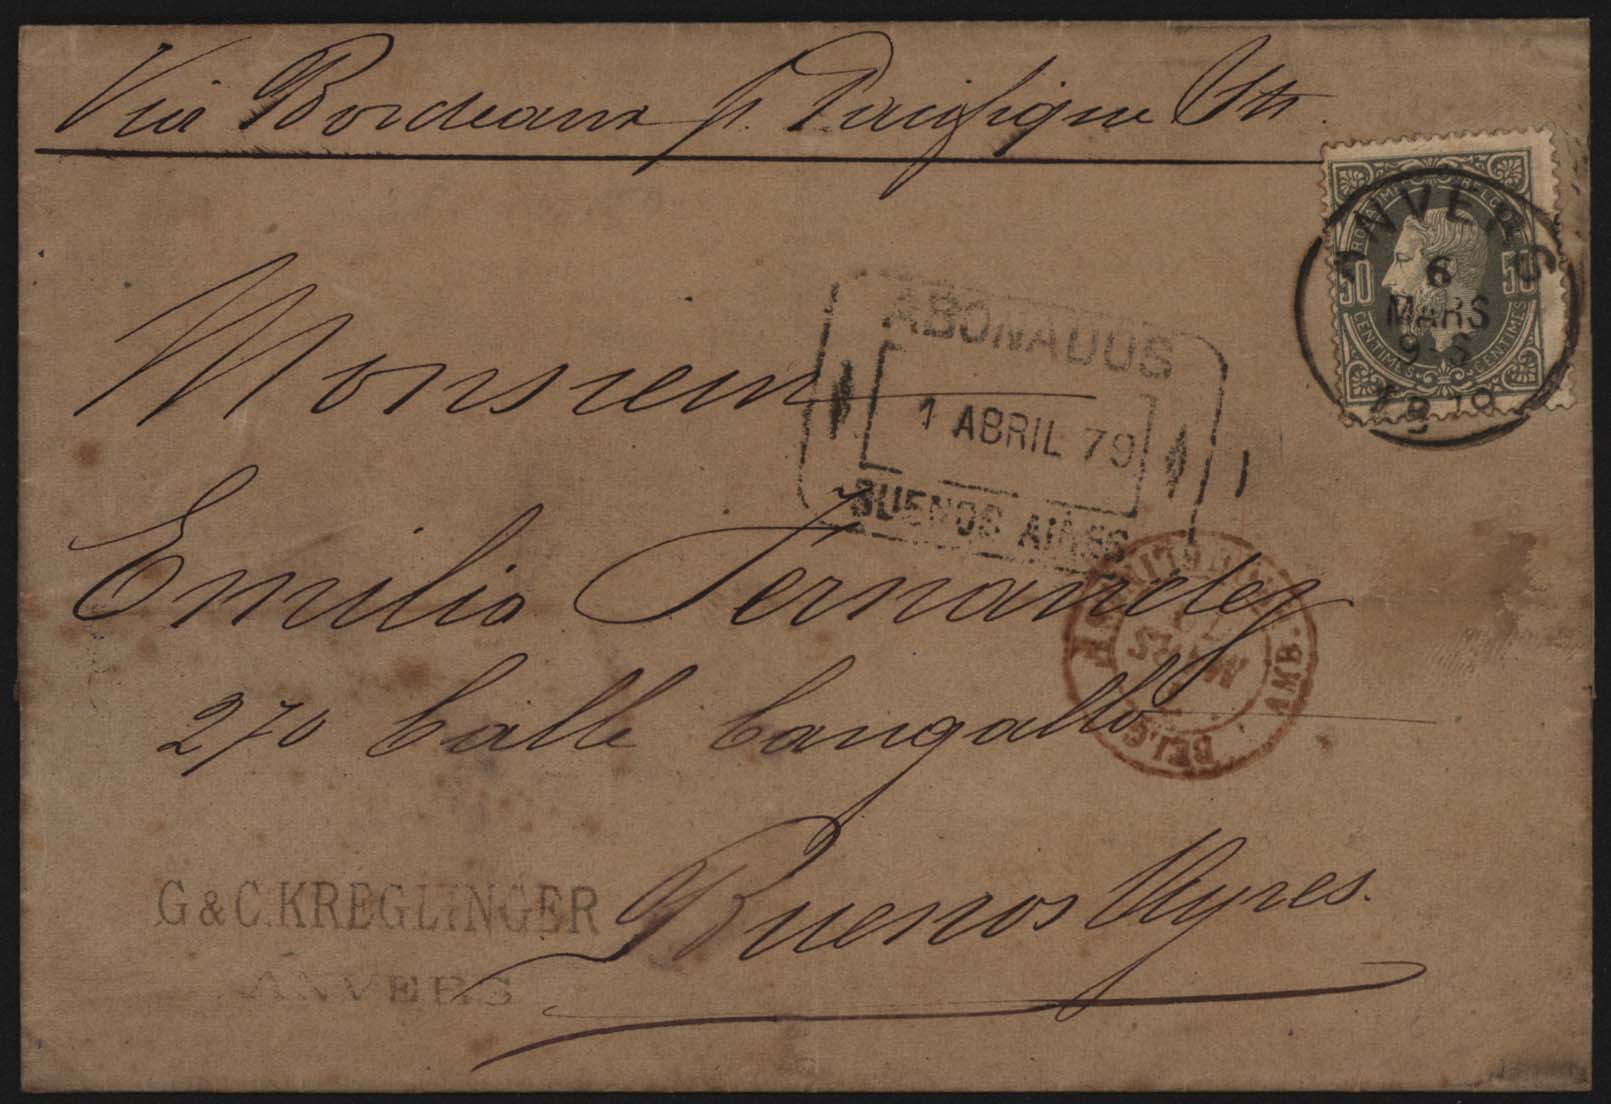 Via Bordeaux p. Pacifique Str.
ANVERS
6
MARS
9-S
1879
ROYAUME DE BELGIQUE
50 50
CENTIMES CENTIMES
Monsieur
ABONADOS
1 ABRIL 79
BUENOS AIRES
Emilio Fernandez
270 Calle Cangallo
BELG. AMB.
MARS
G & C. KREGLINGER
ANVERS
Buenos Ayres.